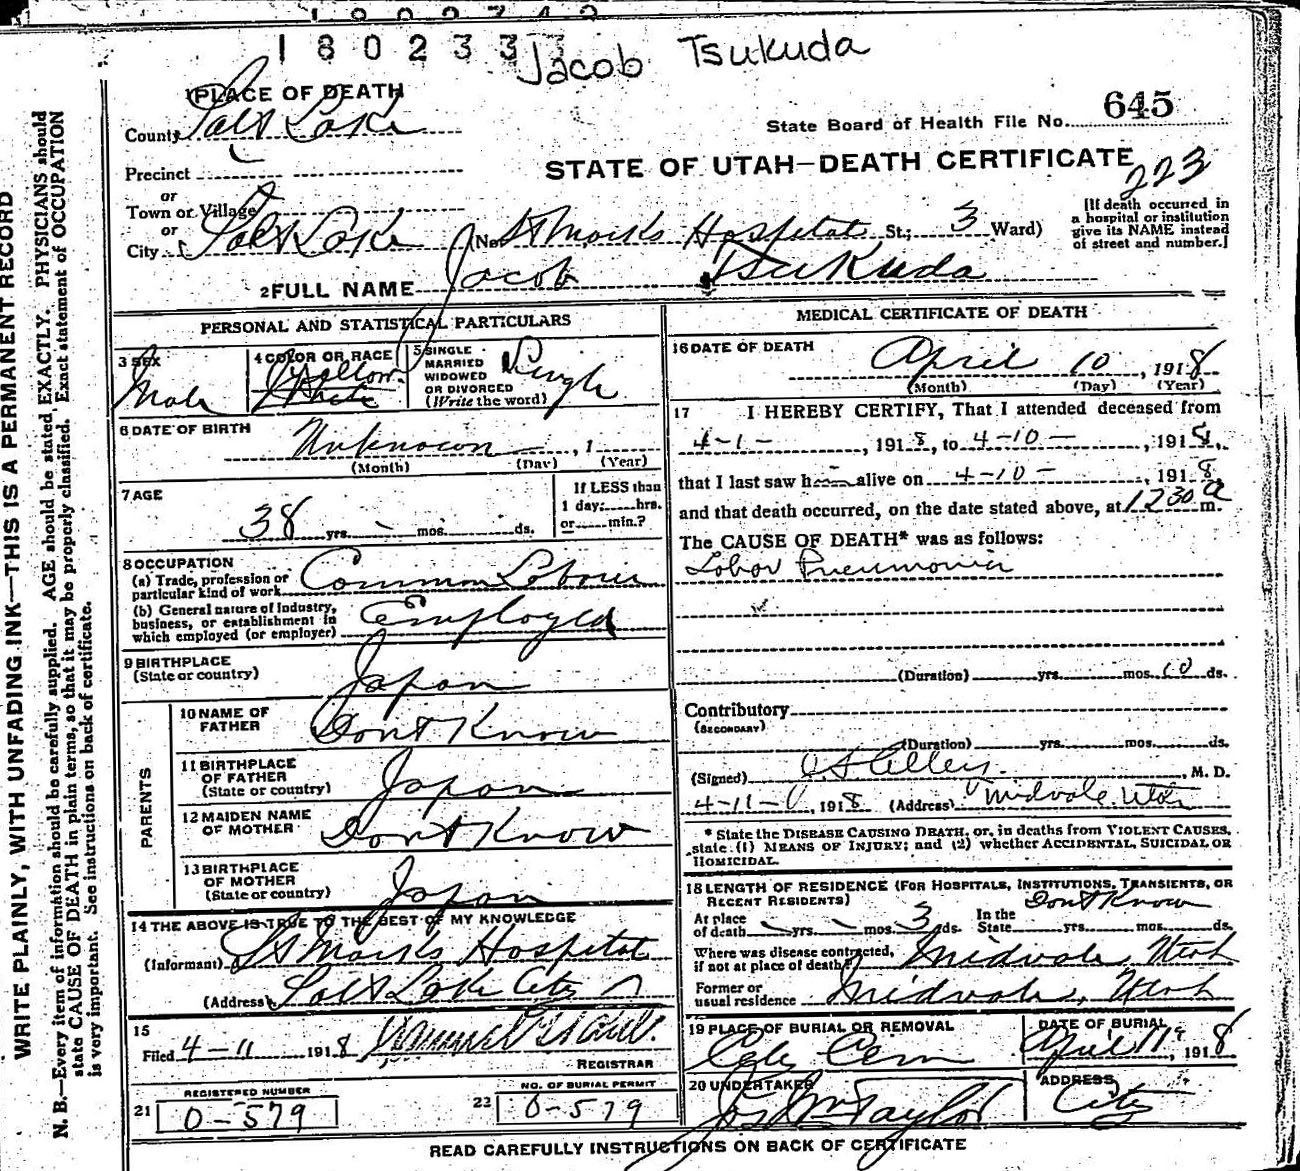 1802333
Jacob Tsukuda
1 PLACE OF DEATH
County Salt Lake
State Board of Health File No. 645
Precinct
STATE OF UTAH—DEATH CERTIFICATE
223
or
Town or Village
or
City Salt Lake (No. St Marks Hospital St.; 3 Ward)
[If death occurred in a hospital or institution give its NAME instead of street and number.]
2 FULL NAME Jacob Tsukuda
PERSONAL AND STATISTICAL PARTICULARS
3 SEX
Male
4 COLOR OR RACE
Yellow
White
5 SINGLE MARRIED WIDOWED OR DIVORCED (Write the word)
Single
6 DATE OF BIRTH
Unknown , 1
(Month) (Day) (Year)
7 AGE
38 yrs. - mos. - ds.
If LESS than 1 day; hrs. or min.?
8 OCCUPATION
(a) Trade, profession or particular kind of work Common Labour
(b) General nature of Industry, business, or establishment in which employed (or employer) Employed
9 BIRTHPLACE
(State or country) Japan
PARENTS
10 NAME OF FATHER Dont Know
11 BIRTHPLACE OF FATHER (State or country) Japan
12 MAIDEN NAME OF MOTHER Dont Know
13 BIRTHPLACE OF MOTHER (State or country) Japan
14 THE ABOVE IS TRUE TO THE BEST OF MY KNOWLEDGE
(Informant) St Marks Hospital
(Address) Salt Lake City
15
Filed 4-11 1918
REGISTRAR
REGISTERED NUMBER
21 0-579
NO. OF BURIAL PERMIT
22 0-579
MEDICAL CERTIFICATE OF DEATH
16 DATE OF DEATH
April 10, 1918
(Month) (Day) (Year)
17 I HEREBY CERTIFY, That I attended deceased from
4-1-, 1918, to 4-10-, 1918,
that I last saw h alive on 4-10-, 1918,
and that death occurred, on the date stated above, at 1230 a m.
The CAUSE OF DEATH* was as follows:
Lobar Pneumonia
(Duration) yrs. mos. 10 ds.
Contributory
(SECONDARY)
(Duration) yrs. mos. ds.
(Signed) , M. D.
4-11-, 1918 (Address) Midvale Utah
* State the DISEASE CAUSING DEATH, or, in deaths from VIOLENT CAUSES,
state (1) MEANS OF INJURY; and (2) whether ACCIDENTAL, SUICIDAL OR
HOMICIDAL.
18 LENGTH OF RESIDENCE (FOR HOSPITALS, INSTITUTIONS, TRANSIENTS, OR
RECENT RESIDENTS) Dont Know
At place of death - yrs. - mos. 3 ds. In the State yrs. mos. ds.
Where was disease contracted, if not at place of death? Midvale, Utah
Former or usual residence Midvale, Utah
19 PLACE OF BURIAL OR REMOVAL
City Cem
DATE OF BURIAL
April 11, 1918
20 UNDERTAKER
Jos Wm Taylor
ADDRESS
City
READ CAREFULLY INSTRUCTIONS ON BACK OF CERTIFICATE
WRITE PLAINLY, WITH UNFADING INK—THIS IS A PERMANENT RECORD
N. B.—Every item of information should be carefully supplied. AGE should be stated EXACTLY. PHYSICIANS should
state CAUSE OF DEATH in plain terms, so that it may be properly classified. Exact statement of OCCUPATION
is very important. See instructions on back of certificate.